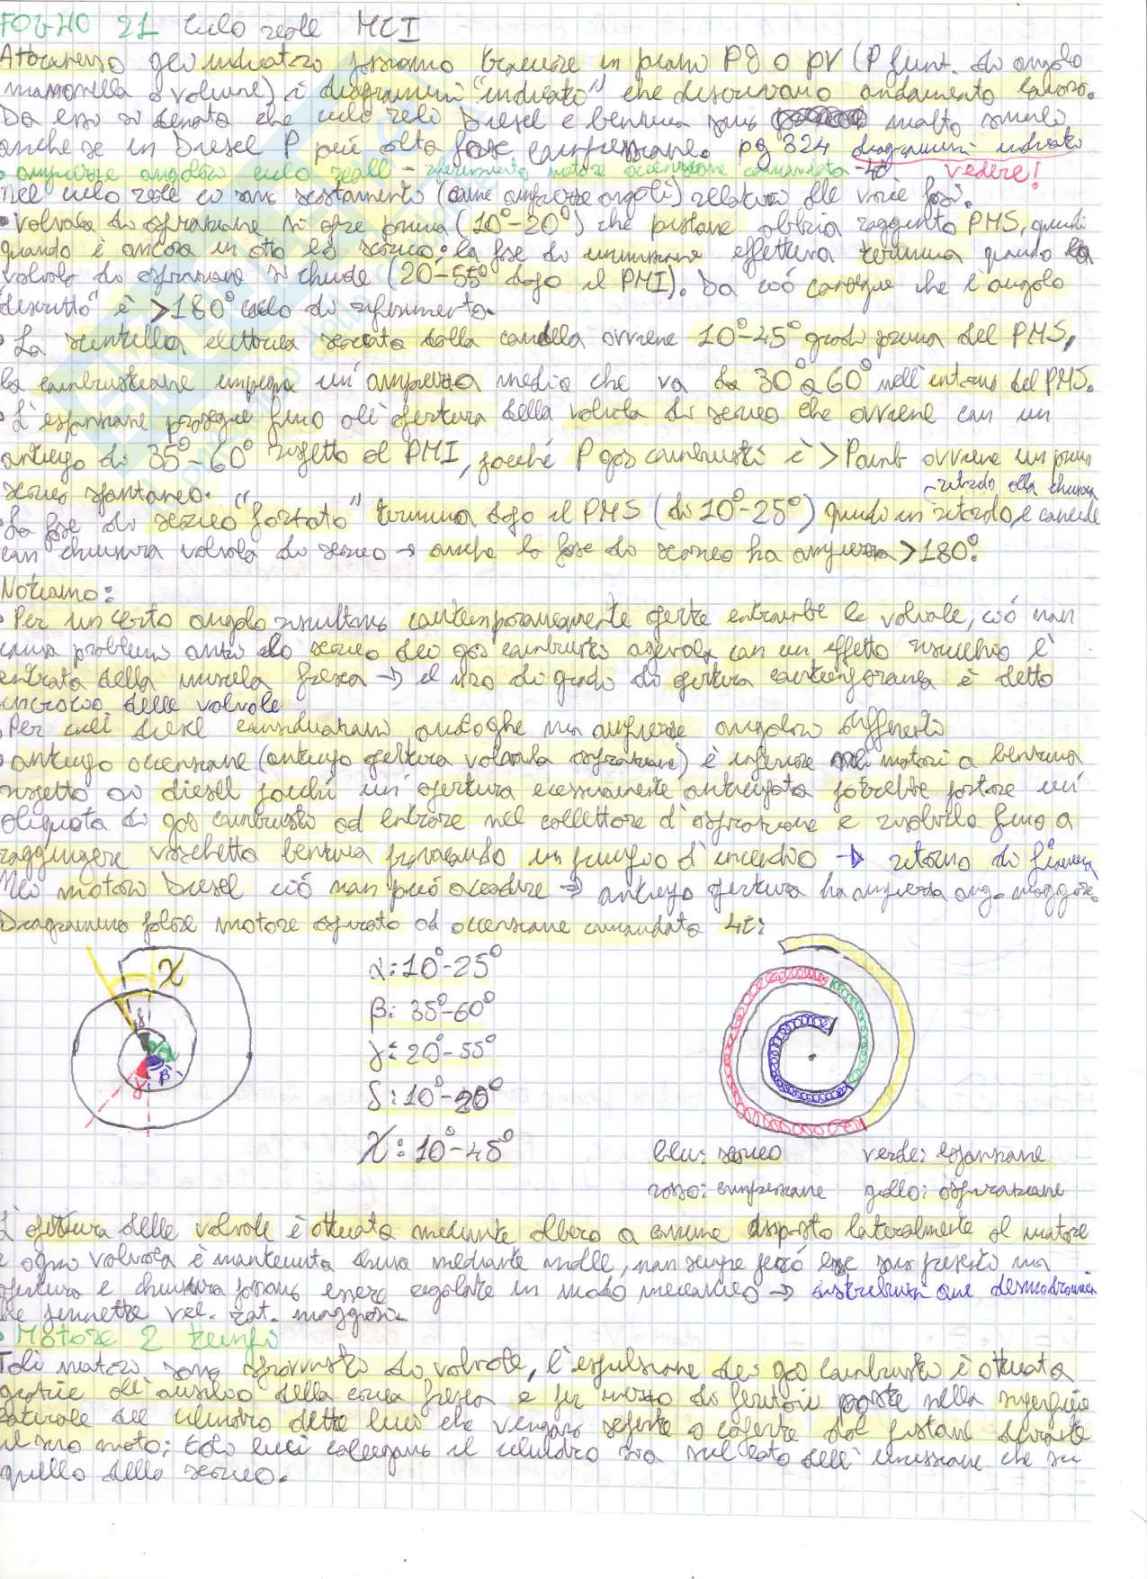 FOGLIO 21 Ciclo reale MCI
Attraverso gli indicatori possiamo tracciare in piano Pϑ o pV (P funt. di angolo
manovella o volume) i diagrammi "indicato" che descrivono andamento lavoro.
Da essi si denota che ciclo reale Diesel e benzina sono molto simili
anche se in Diesel P più alta fase compressione. pg 324 diagrammi indicato
• ampiezze angolari ciclo reale - riferimento motore accensione comandata - 4t vedere!
Nel ciclo reale ci sono scostamenti (come ampiezze angoli) relativi alle varie fasi.
• valvola di aspirazione si apre prima (10°-20°) che pistone abbia raggiunto PMS, quindi
quando è ancora in atto lo scarico; la fase di immissione effettiva termina quando la
valvola di aspirazione si chiude (20-55° dopo il PMI). Da ciò consegue che l'angolo
descritto è >180° ciclo di riferimento.
• La scintilla elettrica scoccata dalla candela avviene 10°-45° gradi prima del PMS,
la combustione impegna un'ampiezza media che va da 30° a 60° nell'intorno del PMS.
• L'espansione prosegue fino all'apertura della valvola di scarico che avviene con un
anticipo di 35°-60° rispetto al PMI, poiché P gas combusti è >Pamb avviene un primo
scarico spontaneo. -ritardo alla chiusura
• La fase di scarico "forzato" termina dopo il PMS (di 10°-25°) quindi in ritardo, e coincide
con chiusura valvola di scarico → anche la fase di scarico ha ampiezza >180°.
Notiamo:
• Per un certo angolo risultano contemporaneamente aperte entrambe le valvole, ciò non
causa problemi anzi lo scarico dei gas combusti agevola con un effetto risucchio l'
entrata della miscela fresca → il n°o di gradi di apertura contemporanea è detto
incrocio delle valvole
• Per cicli diesel consideriamo analoghe ma ampiezze angolari differenti
• anticipo accensione (anticipo apertura valvola aspirazione) è inferiore nei motori a benzina
rispetto ai diesel poiché un'apertura eccessivamente anticipata potrebbe portare un'
aliquota di gas combusto ad entrare nel collettore d'aspirazione e risalirlo fino a
raggiungere vaschetta benzina provocando un principio d'incendio → ritorno di fiamma
Nei motori Diesel ciò non può accadere → anticipo apertura ha ampiezza ang. maggiore.
Diagramma polare motore aspirato ad accensione comandata 4t:
χ
δ
α
β
γ
α: 10°-25°
β: 35°-60°
γ: 20°-55°
δ: 10°-20°
χ: 10°-45°
blu: scarico verde: espansione
rosso: compressione giallo: aspirazione
L'apertura delle valvole è attuata mediante albero a camme disposto lateralmente al motore
e ogni valvola è mantenuta chiusa mediante molle, non sempre però esse sono presenti ma
apertura e chiusura possono essere regolate in modo meccanico → distribuzione desmodromica
che permette vel. rot. maggiori
• Motore 2 tempi
Tali motori sono sprovvisti di valvole, l'espulsione dei gas combusti è attuata
grazie all'ausilio della carica fresca e per mezzo di feritoie poste nella superficie
laterale del cilindro dette luci che vengono aperte o coperte dal pistone durante
il suo moto; tali luci collegano il cilindro sia sul lato dell'immissione che su
quello dello scarico.